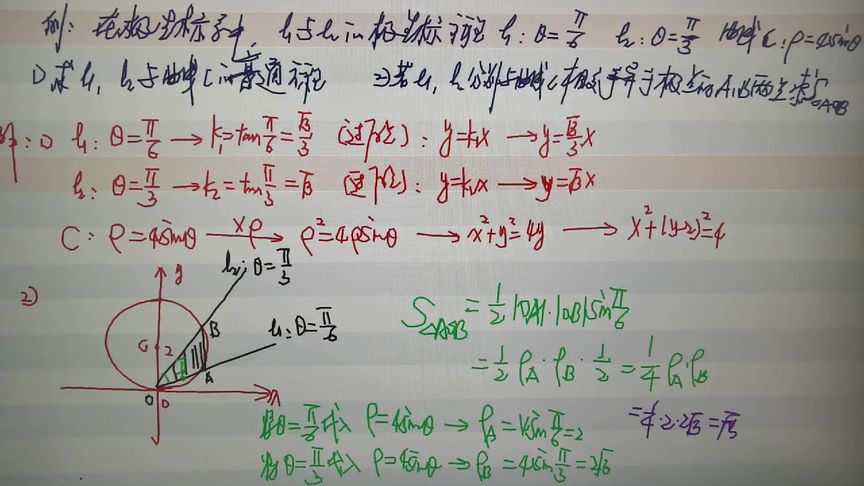 例: 在极坐标系中, l₁与l₂的极坐标方程 l₁: θ=π/6 l₂: θ=π/3 曲线C: ρ=4sinθ
1) 求l₁, l₂与曲线C的普通方程 2) 若l₁, l₂分别与曲线C相交于异于极点的A,B两点 求S△AOB
解: 1) l₁: θ=π/6 → k₁=tanπ/6=√3/3 (过原点): y=k₁x → y=√3/3x
l₂: θ=π/3 → k₂=tanπ/3=√3 (过原点): y=k₂x → y=√3x
C: ρ=4sinθ ×ρ→ ρ²=4ρsinθ → x²+y²=4y → x²+(y-2)²=4
2)
y
l₂: θ=π/3
l₁: θ=π/6
B
C 2
A
O
x
S△AOB =1/2|OA|·|OB|sinπ/6
=1/2ρA·ρB·1/2=1/4ρA·ρB
=1/4·2·2√3=√3
将θ=π/6代入 ρ=4sinθ → ρA=4sinπ/6=2
将θ=π/3代入 ρ=4sinθ → ρB=4sinπ/3=2√3